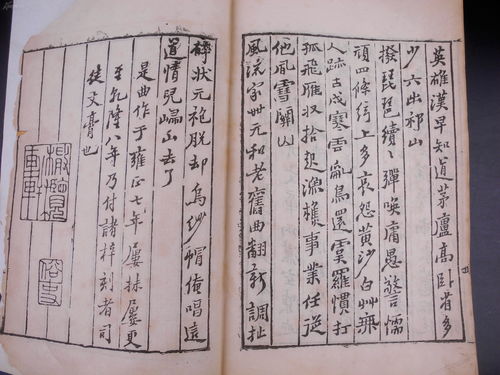 英雄漢早知道茅廬高臥省多
少六出祁山
撥琵琶續〻彈喚庸愚警懦
頑四條絃上多哀怨黃沙白艸無
人跡古戍寒雲亂鳥還虞羅慣打
孤飛雁收拾起漁樵事業任從
他風雪關山
風流家世元和老舊曲翻新調扯
碎狀元袍脫却烏紗帽俺唱這
道情兒歸山去了
是曲作于雍正七年屢抹屢更
至乾隆八年乃付諸梓刻者司
徒文膏也
俗吏